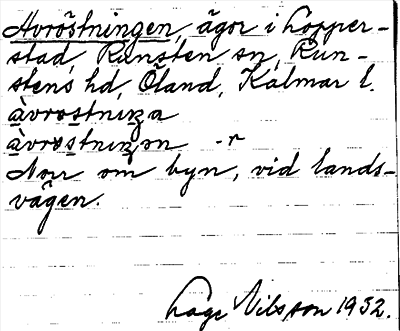 Avröstningen, ägor i Lopper-
stad, Runsten sn, Run-
stens hd, Öland, Kalmar l.
àvrostniŋa
àvrostniŋan -r
Norr om byn, vid lands-
vägen.
Lage Nilsson 1932.